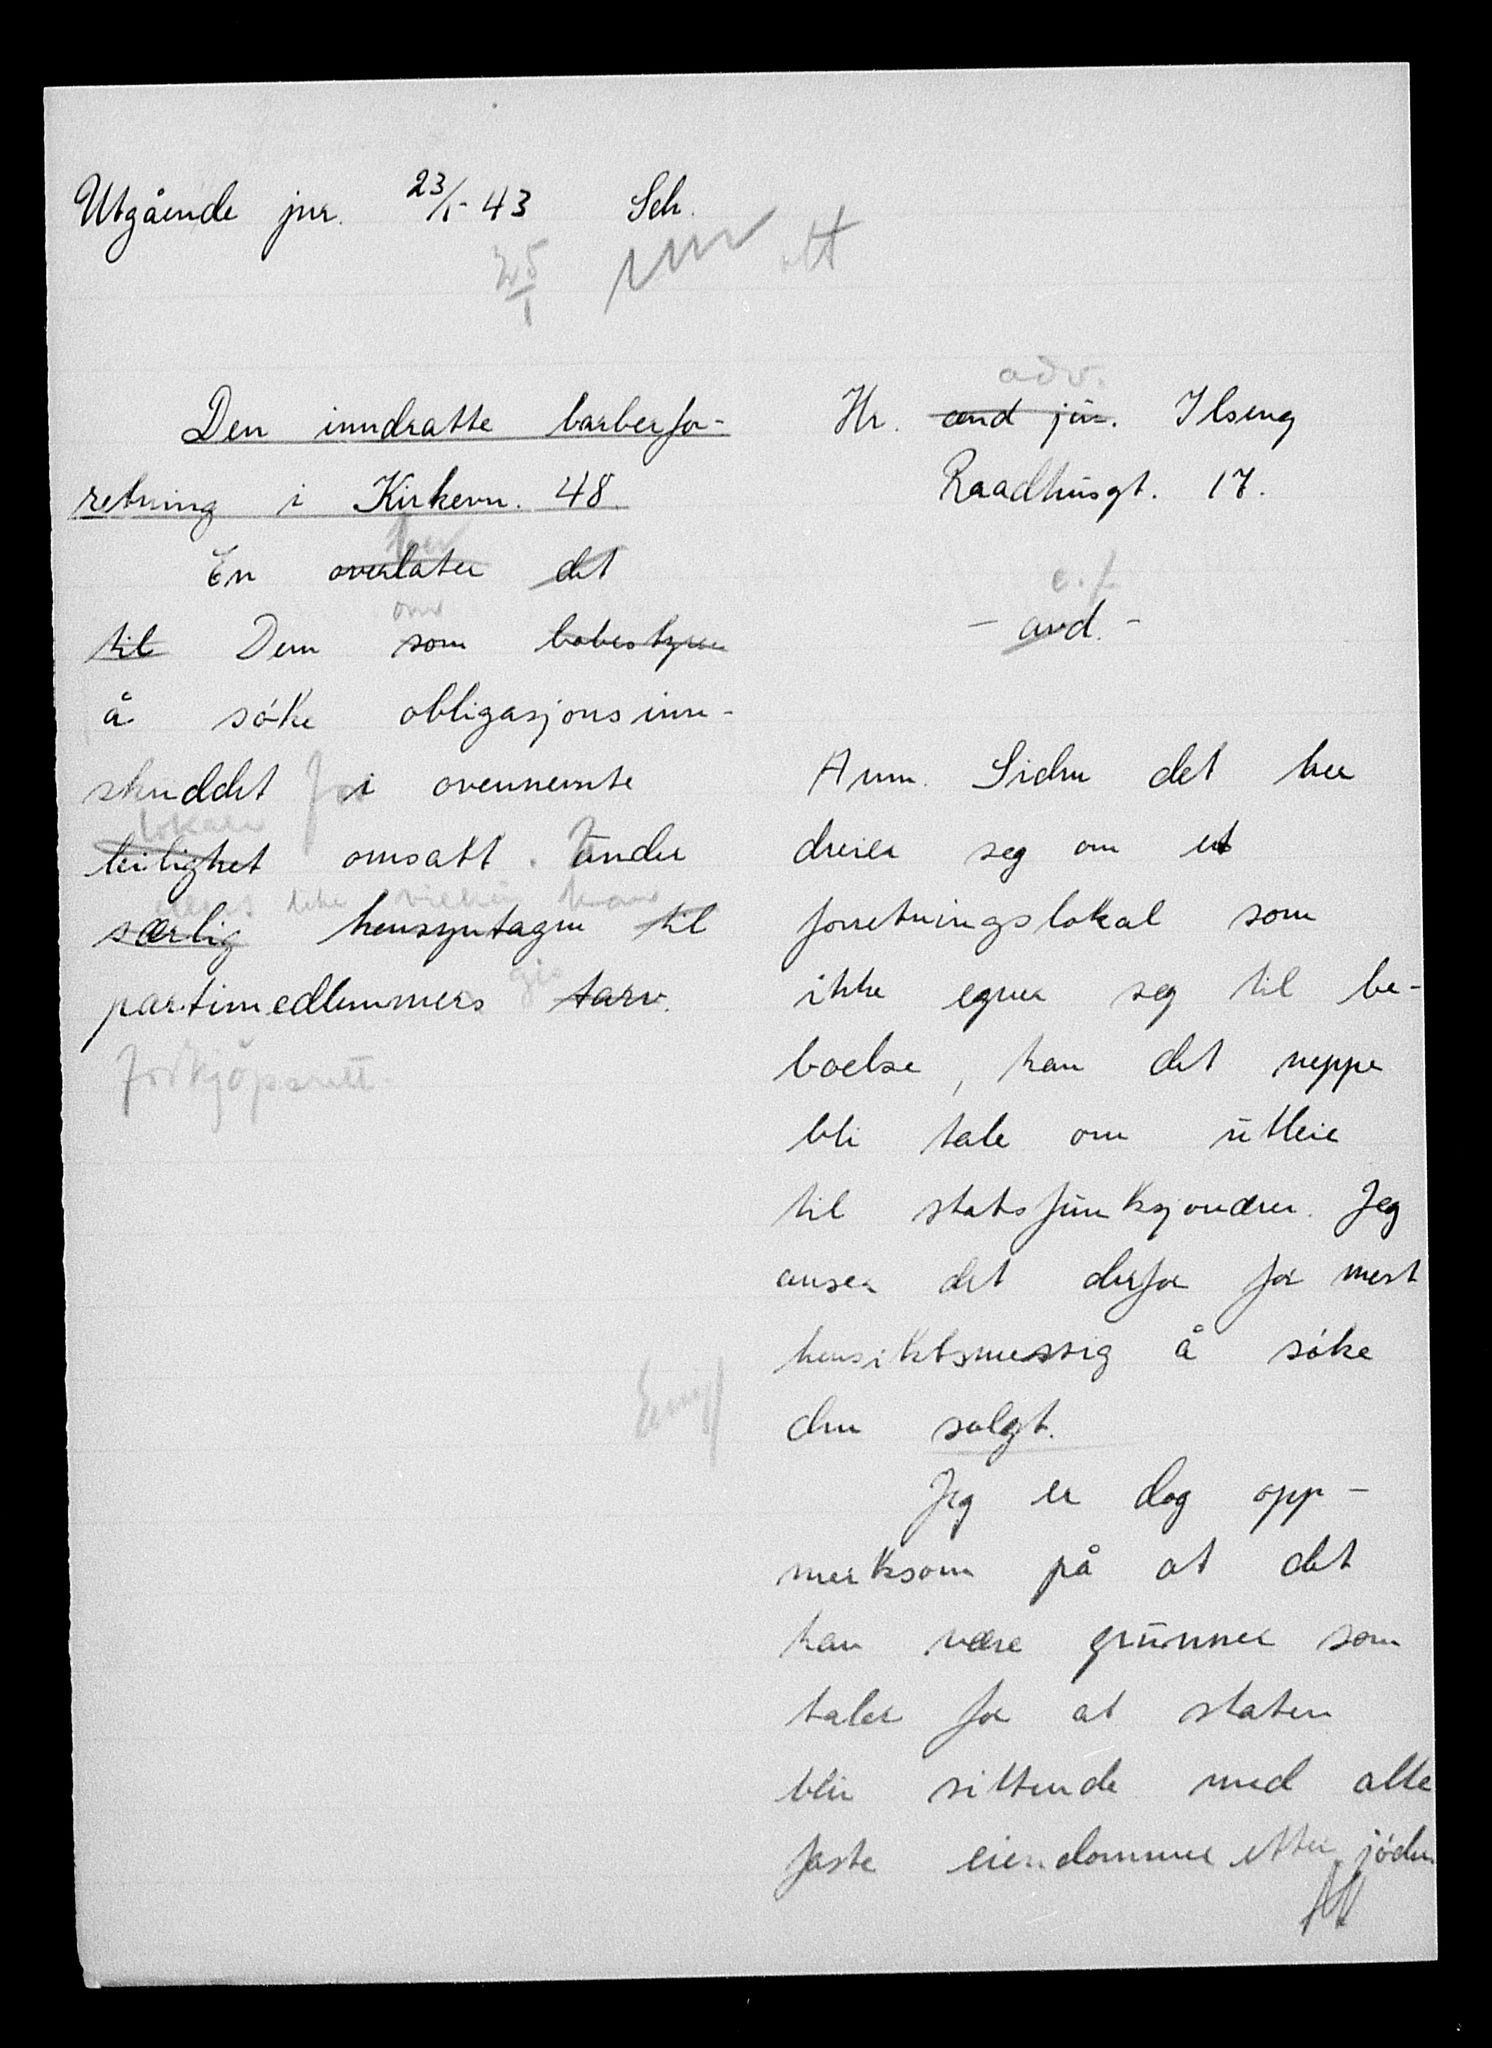 Utgående jnr. 23/1-43 Sch.
25/1
adv.
Hr. cand jur. Ilseng
Raadhusgt. 17.
e.f.
- avd. -
Den inndratte barberfor-
retning i Kirkevn. 48.
ber
En overlater det
om
til Dem som bobestyrer
å søke obligasjonsinn-
skuddet for i ovennevnte
lokaler
leilighet omsatt. Under
ellers like vilkår kan
særlig hensyntagen til
gis
partimedlemmers tarv.
forkjöpsrett.
Anm. Siden det her
dreier seg om et
forretningslokal som
ikke egner seg til be-
boelse, kan det neppe
bli tale om utleie
til statsfunksjonærer. Jeg
anser det derfor for mest
hensiktsmessig å søke
den solgt.
Jeg er dog opp-
merksom på at det
kan være grunner som
taler for at staten
blir sittende med alle
faste eiendommer etter jöder